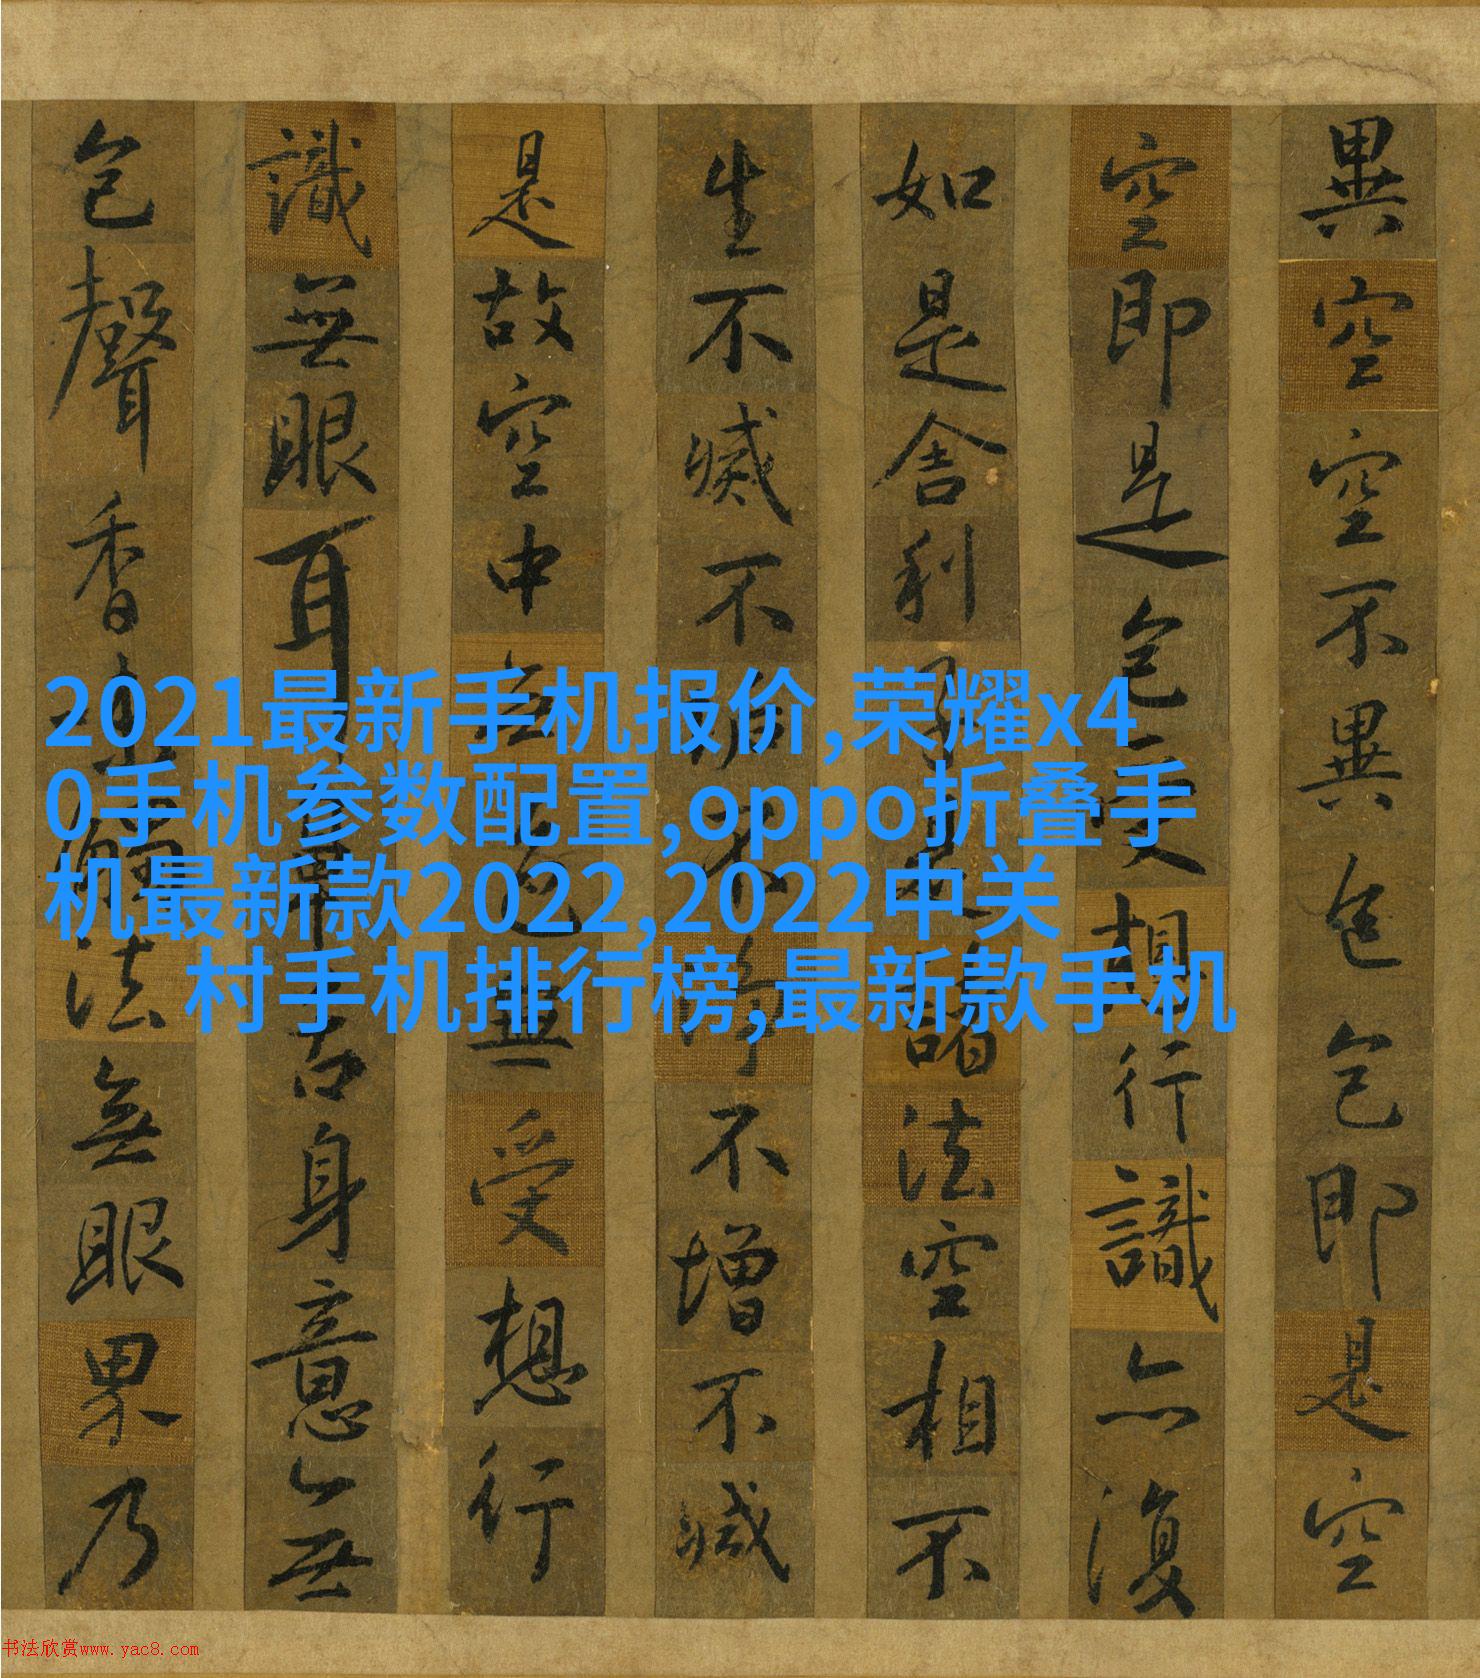 異空空不異色色即是空
空即是色受想行識亦復
如是舍利子是諸法空相不
生不滅不垢不淨不增不減
是故空中無色無受想行
識無眼耳鼻舌身意無
色聲香味觸法無眼界乃
2021最新手机报价,荣耀x4
0手机参数配置,oppo折叠手
机最新款2022,2022中关
村手机排行榜,最新款手机
书法欣赏www.yac8.com